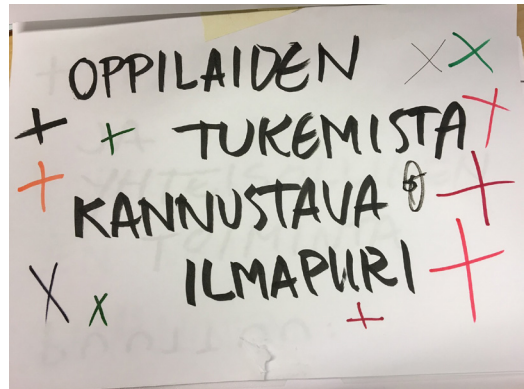 OPPILAIDEN
TUKEMISTA
KANNUSTAVA
ILMAPIIRI